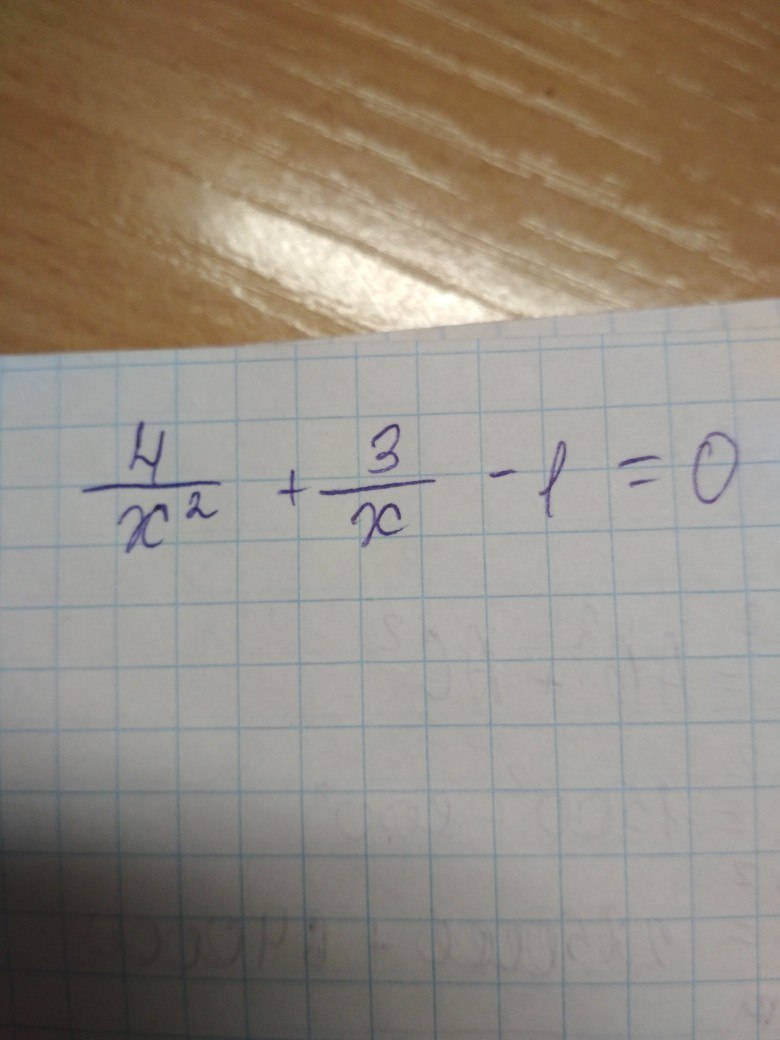 4/x² + 3/x - 1 = 0